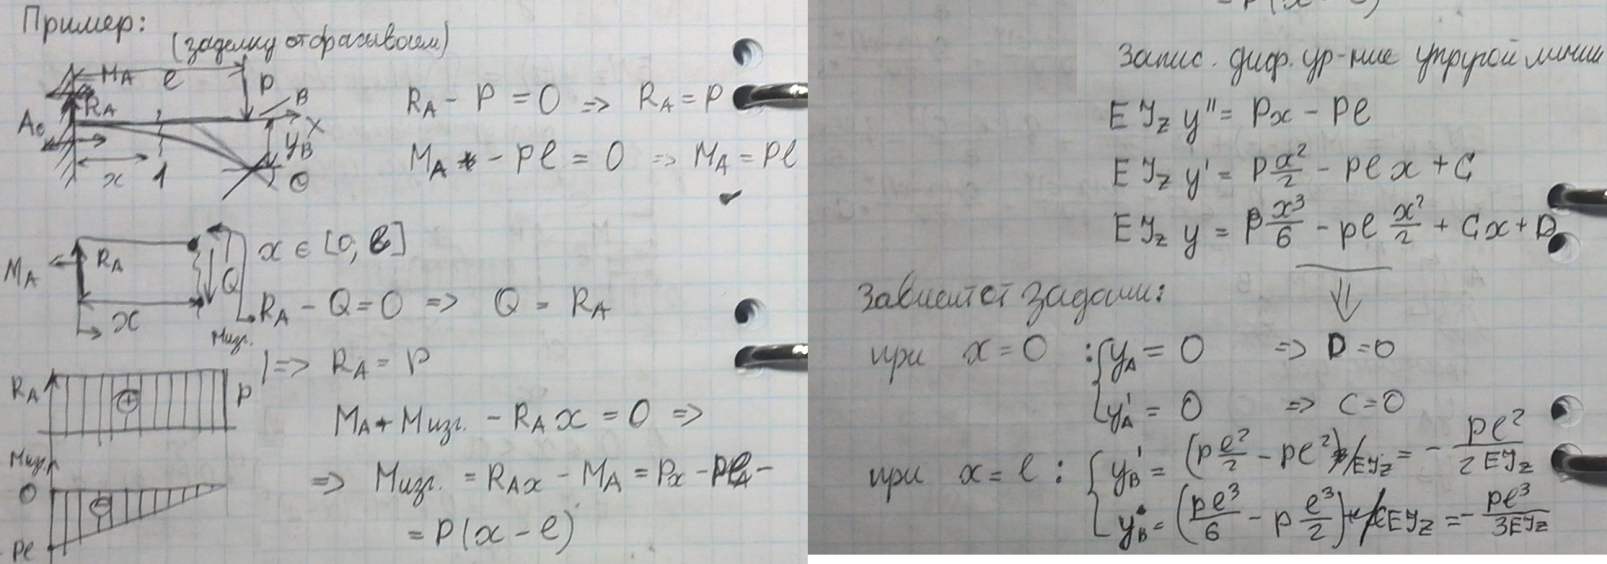 Пример:
(заделку отбрасываем)
M_A
l
P
R_A
B
A
x
y_B
x
1
Θ
R_A - P = 0 => R_A = P
M_A - Pl = 0 => M_A = Pl
M_A
R_A
Q
x
Mизг.
x ∈ [0, l]
R_A - Q = 0 => Q = R_A
|=> R_A = P
R_A
+
P
M_A + Mизг. - R_A x = 0 =>
Mизг.
0
-
Pl
=> Mизг. = R_A x - M_A = Px - Pl =
= P(x - l)
Запис. диф. ур-ние упругой линии
E J_z y'' = Px - Pl
E J_z y' = P x²/2 - Pl x + C
E J_z y = P x³/6 - Pl x²/2 + Cx + D
⇓
Зависит от задачи:
при x = 0 : { y_A = 0 => D = 0
y'_A = 0 => C = 0
при x = l : { y'_B = (P l²/2 - Pl²)/EJ_z = - Pl²/2EJ_z
y_B = (Pl³/6 - P l³/2)/EJ_z = - Pl³/3EJ_z